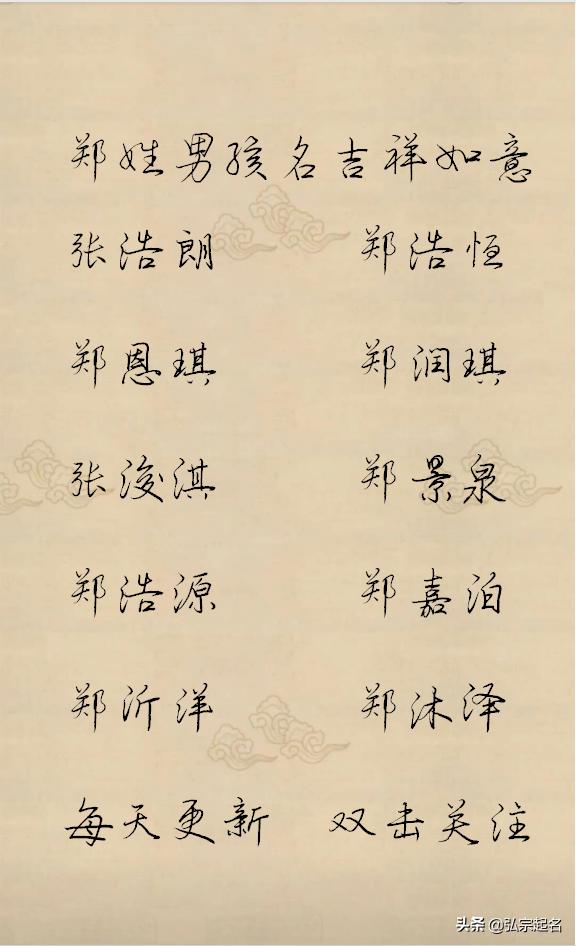 郑姓男孩名吉祥如意
张浩朗 郑浩恒
郑恩琪 郑润琪
张浚淇 郑景泉
郑浩源 郑嘉泊
郑沂洋 郑沐泽
每天更新 双击关注
头条 @弘宗起名